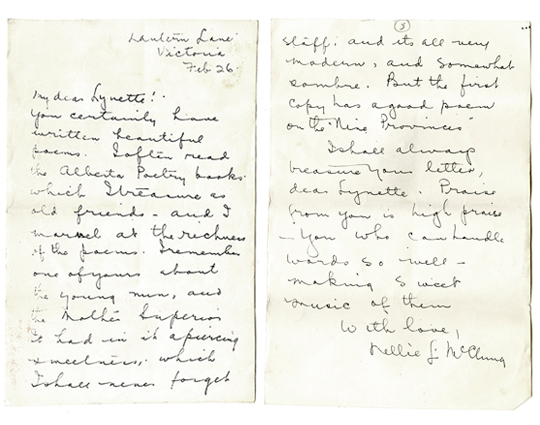 Lantern Lane
Victoria
Feb 26.
My dear Lynette!
You certainly have
written beautiful
poems. I often read
the Alberta Poetry books
which I treasure as
old friends - and I
marvel at the richness
of the poems. I remember
one of yours about
the young nun, and
the Mother Superior
It had in it a piercing
sweetness, which
I shall never forget
staff. and its all very
modern, and somewhat
sombre. But the first
copy has a good poem
on the "Nine Provinces"
I shall always
treasure your letter,
dear Lynette. Praise
from you is high praise
- You who can handle
words so well -
making sweet
music of them
With love,
Nellie L. McClung